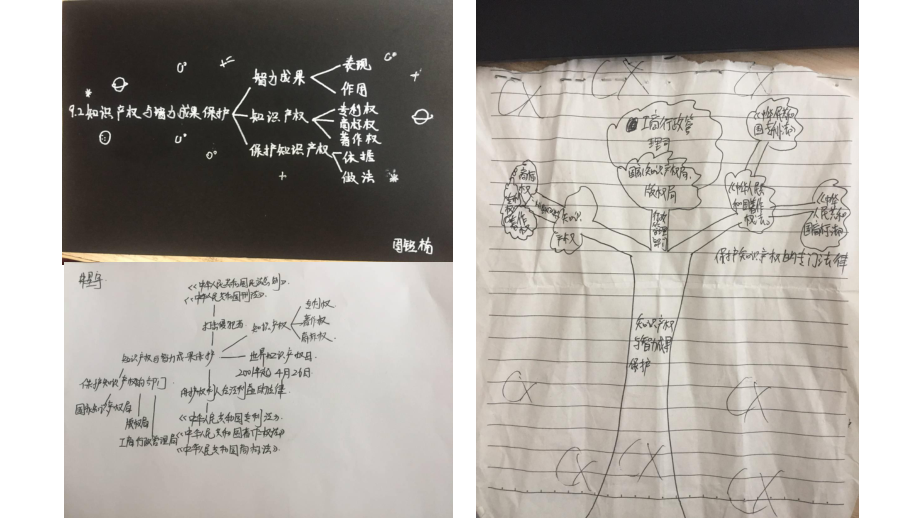 智力成果
表现
作用
9.2知识产权与智力成果保护
知识产权
专利权
商标权
著作权
保护知识产权
依据
做法
《中华人民共和国刑法》
知识产权
专利权
著作权
商标权
知识产权与智力成果保护
世界知识产权日
2001年起 4月26日
保护知识产权的部门
国家知识产权局
版权局
工商行政管理局
《中华人民共和国专利法》
《中华人民共和国著作权法》
《中华人民共和国商标法》
工商行政管
理司
国家知识产权局
版权局
商标
权
专利
权
著作
权
知识
产权
行政
管理
部门
《中华人民共和
国专利法》
《中华人民
共和国著作
权法》
《中华
人民共和
国商标法》
保护知识产权的专门法律
知识产权
与智力成果
保护
CX
CX
CX
CX
CX
CX
CX